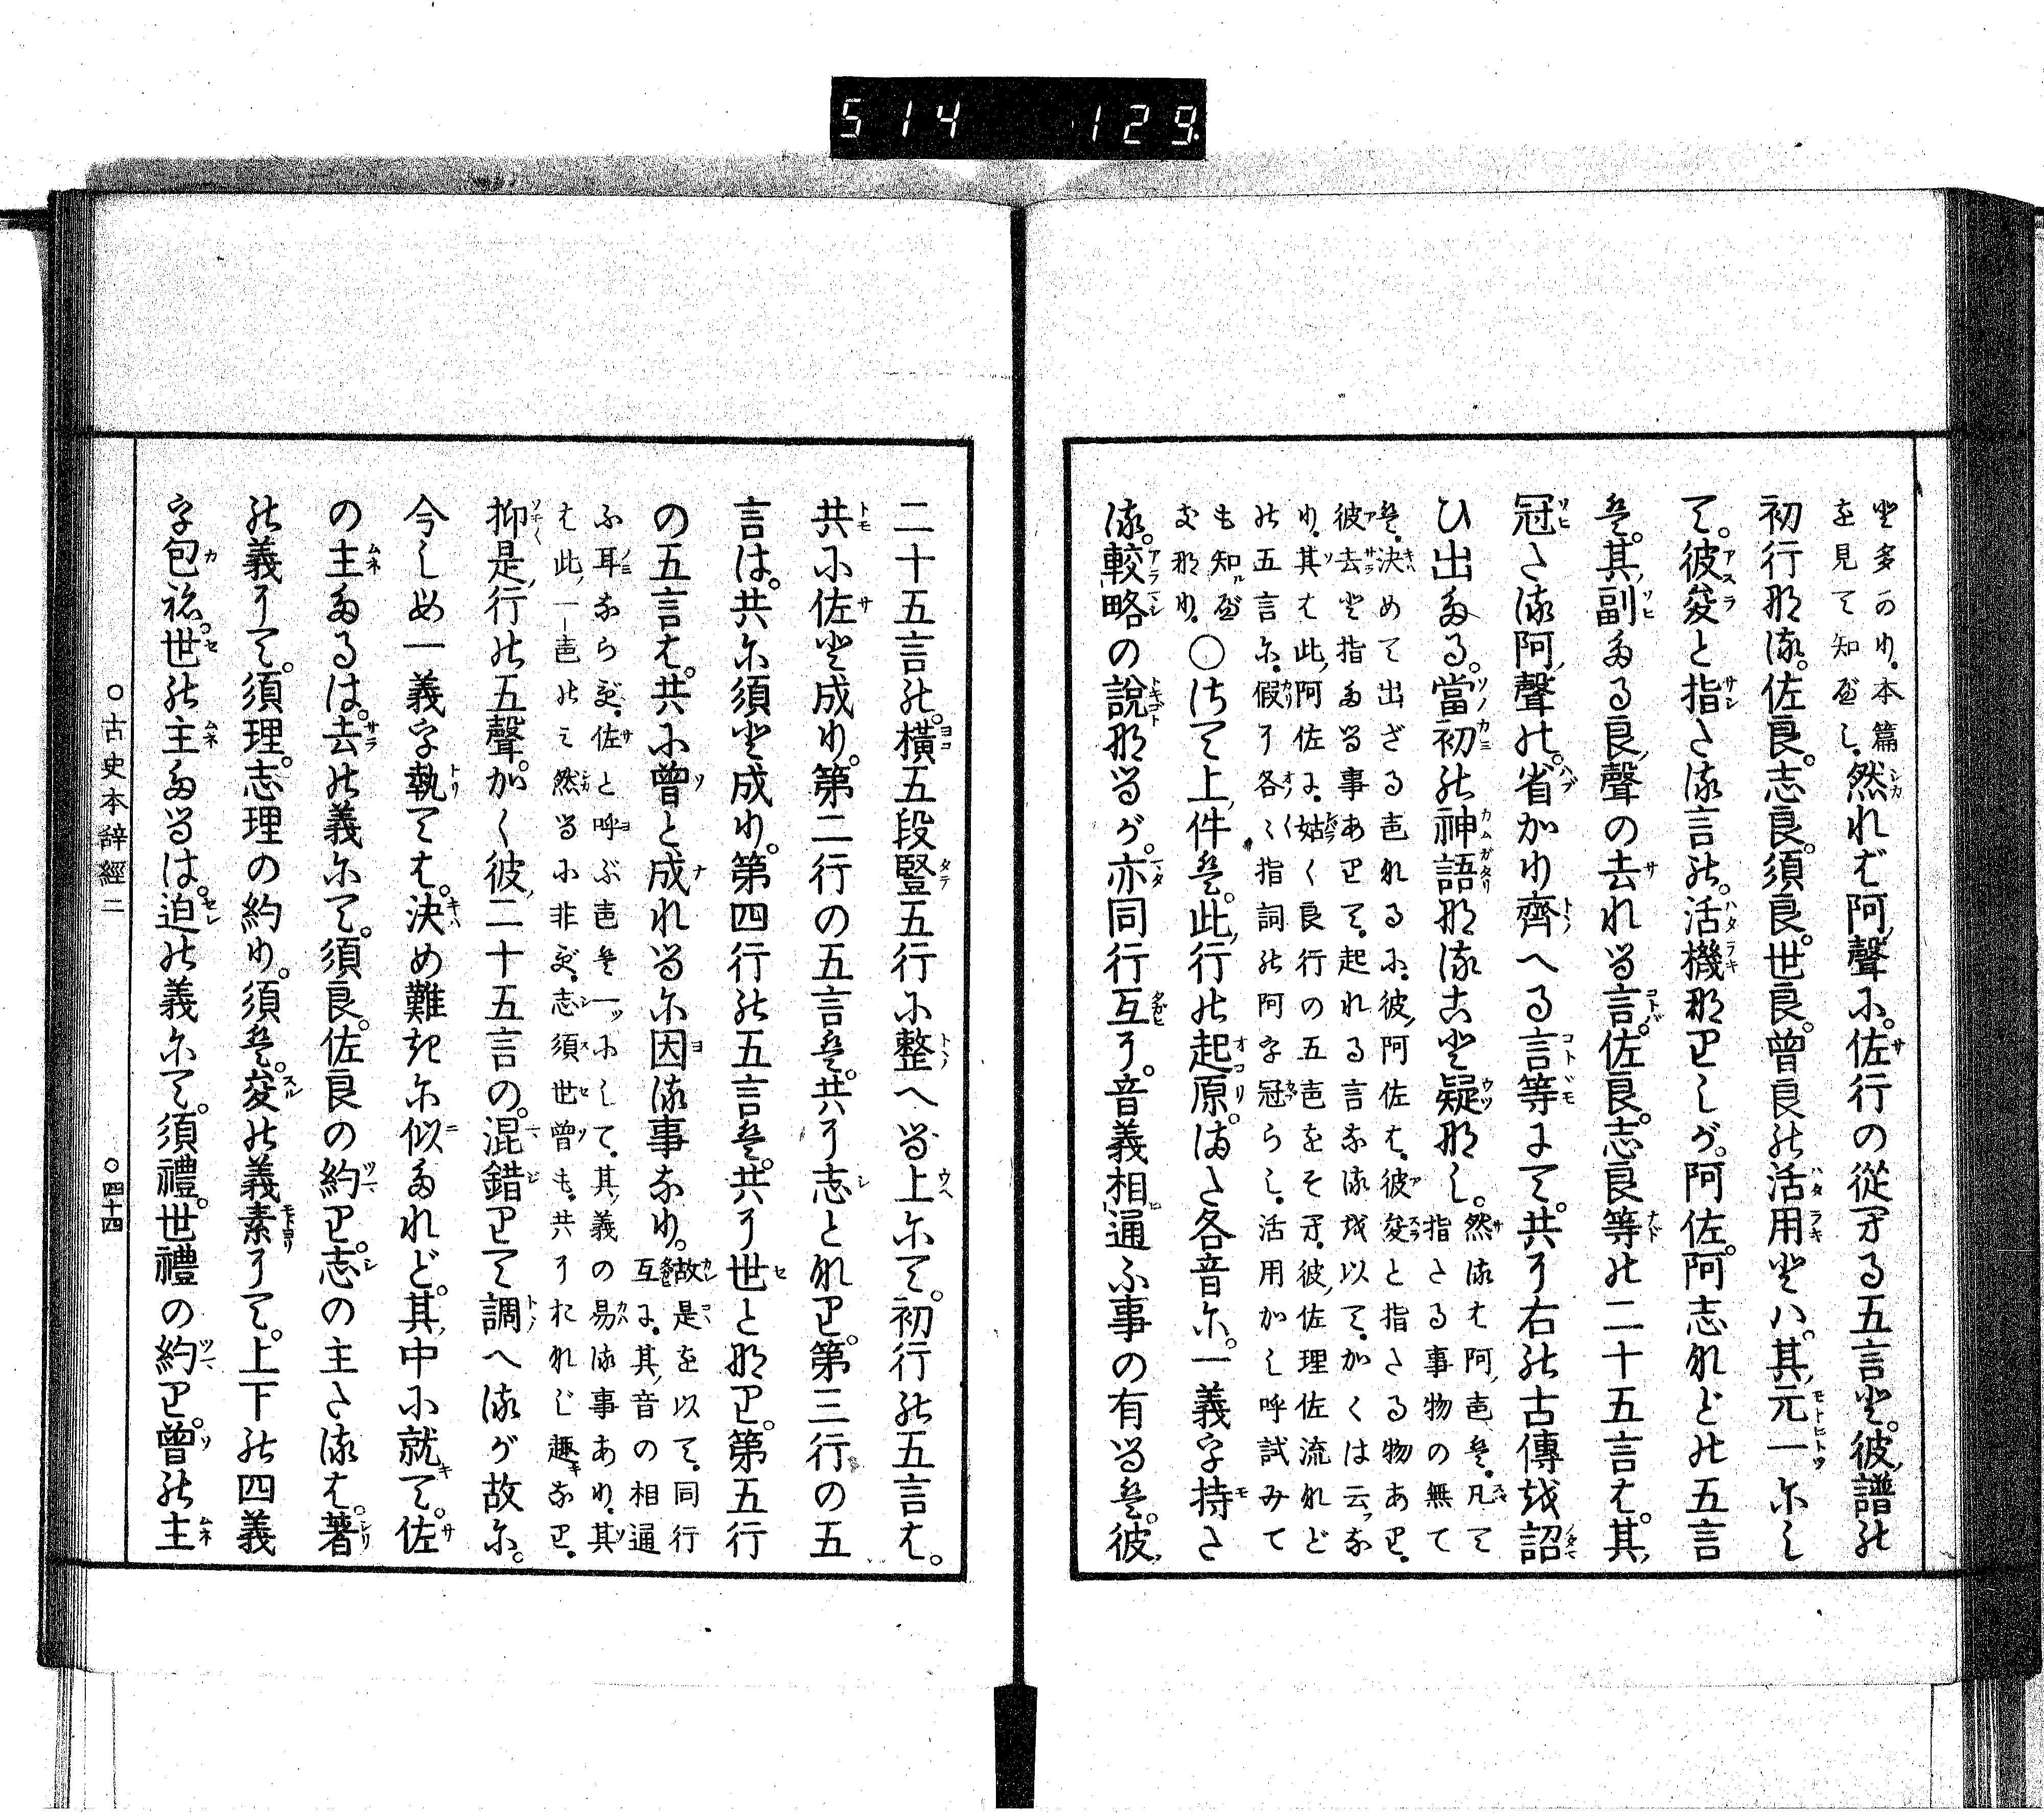 514 129
と多かり。本篇
を見て知べし。然れば阿聲に。佐行の從へる五言と。彼譜の
初行なる。佐良。志良。須良。世良。曾良の活用とハ。其元一にし
て。彼爰と指さる言の。活機なりしが。阿佐。阿志などの五言
は。其副たる良聲の去れる言。佐良。志良等の二十五言は。其
冠さる阿聲の。省かり齊へる言等にて。共に右の古傳を詔
ひ出たる。當初の神語なること疑なし。然るは阿言は。凡て
は。決めて出ざる言なるに。彼阿佐は。彼爰と指さる物あり。指さる事物の無て
彼去と指たる事ありて。起れる言なるを以て。かくは云な
り。其は此阿佐に。姑く良行の五言をそへ。彼佐理佐流など
の五言に。假に各〻指詞の阿字冠らし。活用かし呼試みて
も知べ
きなり。○さて上件は。此行の起原。まさ各音に。一義字持さ
る。較略の說なるが。亦同行互に。音義相通ふ事の有るは。彼
二十五言の。橫五段竪五行に整へる上にて。初行の五言は。
共に佐と成り。第二行の五言は。共に志となり。第三行の五
言は。共に須と成り。第四行の五言は。共に世となり。第五行
の五言は。共に曾と成れるに因る事なり。故是を以て。同行
互に。其音の相通
ふ耳ならず。佐と呼ぶ言は一ツにして。其義の易る事あり。其
は此一言のミ然るに非ず。志須世曾も。共におなじ趣なり。
抑是行の五聲。かく彼二十五言の。混錯りて調へるが故に。
今しめ一義字執ては。決め難きに似たれど。其中に就て。佐
の主たるは。去の義にて。須良。佐良の約り。志の主さるは。著
の義にて。須理。志理の約り。須は。爰の義素にて。上下の四義
字包ね。世の主たるは。迫の義にて。須禮。世禮の約り。曾の主
○古史本辭經二 ○四十四